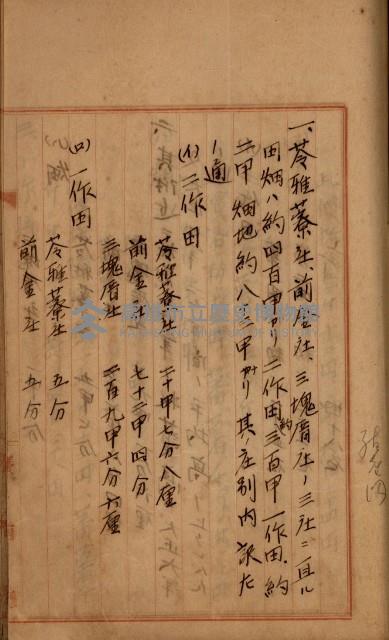 一、苓雅藔庄、前金庄、三塊厝庄ノ三庄ニ亘ル
田畑ハ約四百甲ナリ二作田約三百甲一作田約
二甲畑地約八十三甲ナリ其ノ庄別内訳左
ノ通
(イ)二作田
苓雅藔庄 二十甲七分八厘
前金庄 七十二甲四分
三塊厝庄 二百九甲六分六厘
(ロ)一作田
苓雅藔庄 五分
前金庄 五分
高雄市立歷史博物館